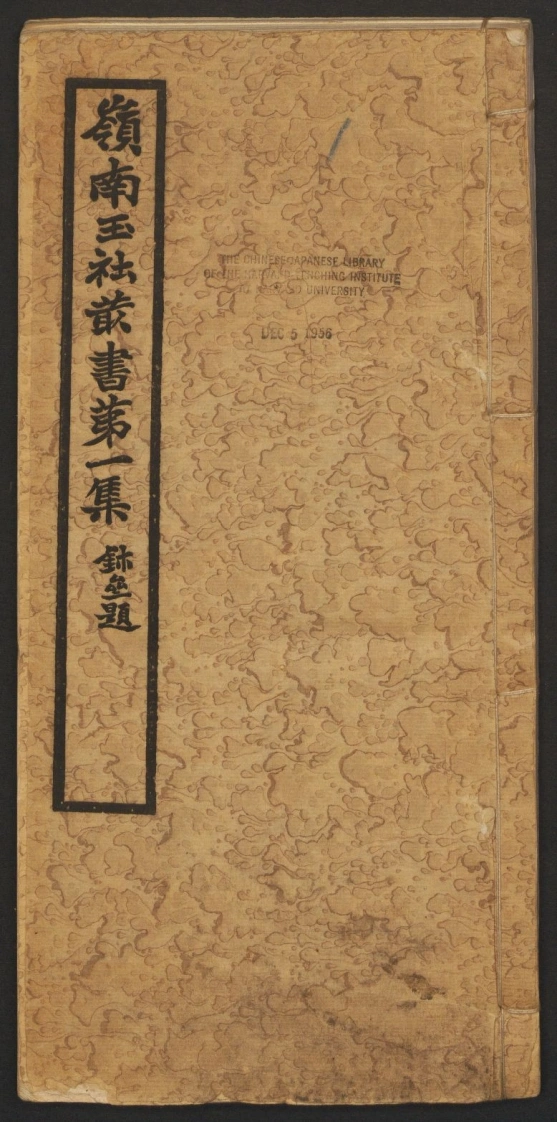 嶺南玉社叢書第一集
題
THE CHINESE-JAPANESE LIBRARY
OF THE HARVARD-YENCHING INSTITUTE
AT HARVARD UNIVERSITY
DEC 5 1956